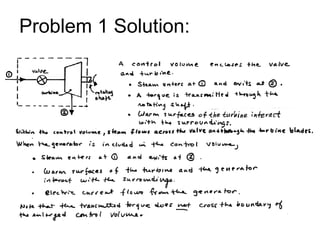 Problem 1 Solution:
valve
①
turbine
rotating
shaft
②
A control volume encloses the valve
and turbine.
• Steam enters at ① and exits at ②.
• A torque is transmitted through the
rotating shaft.
• Warm surfaces of the turbine interact
with the surroundings.
Within the control volume, steam flows across the valve and through the turbine blades.
When the generator is included in the control volume,
• Steam enters at ① and exits at ②.
• Warm surfaces of the turbine and the generator
interact with the surroundings.
• Electric current flows from the generator.
Note that the transmitted torque does not cross the boundary of
the enlarged control volume.